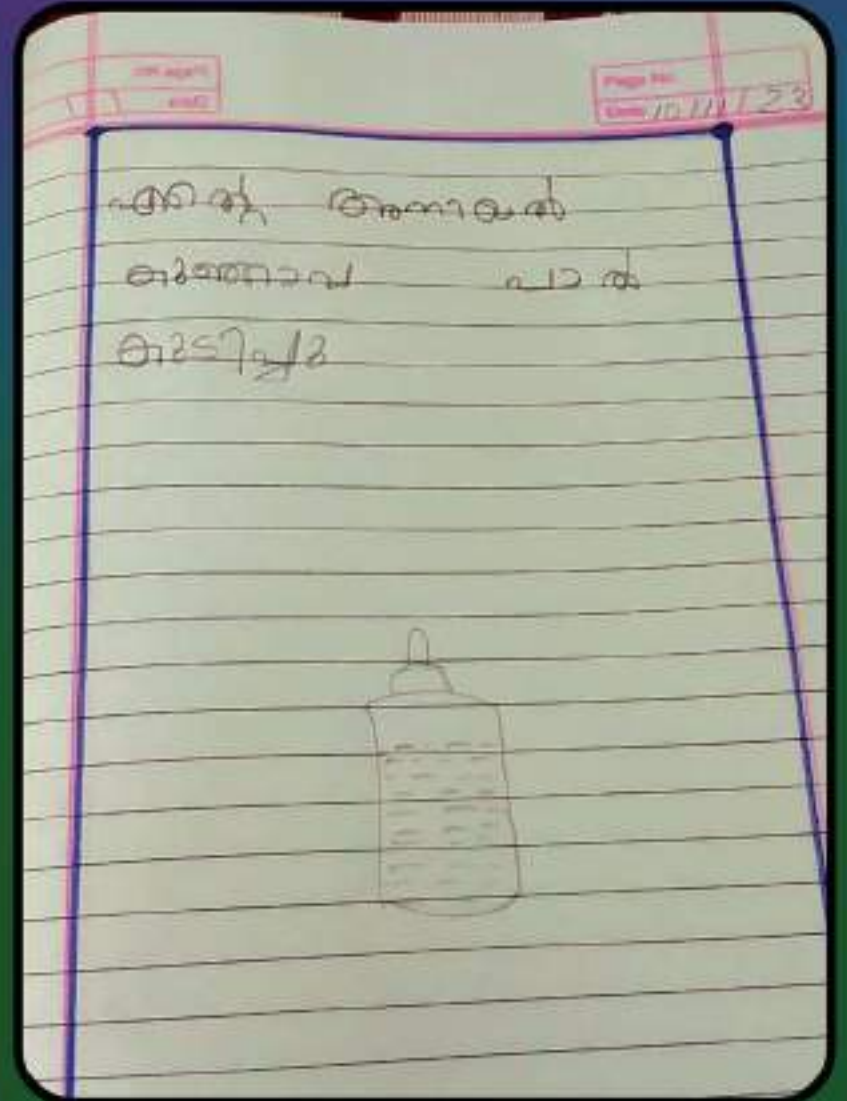 Page No.
Date 10/11/23
എന്റെ അനായൽ
കുഞ്ഞാവ പാൽ
കുടിച്ചു